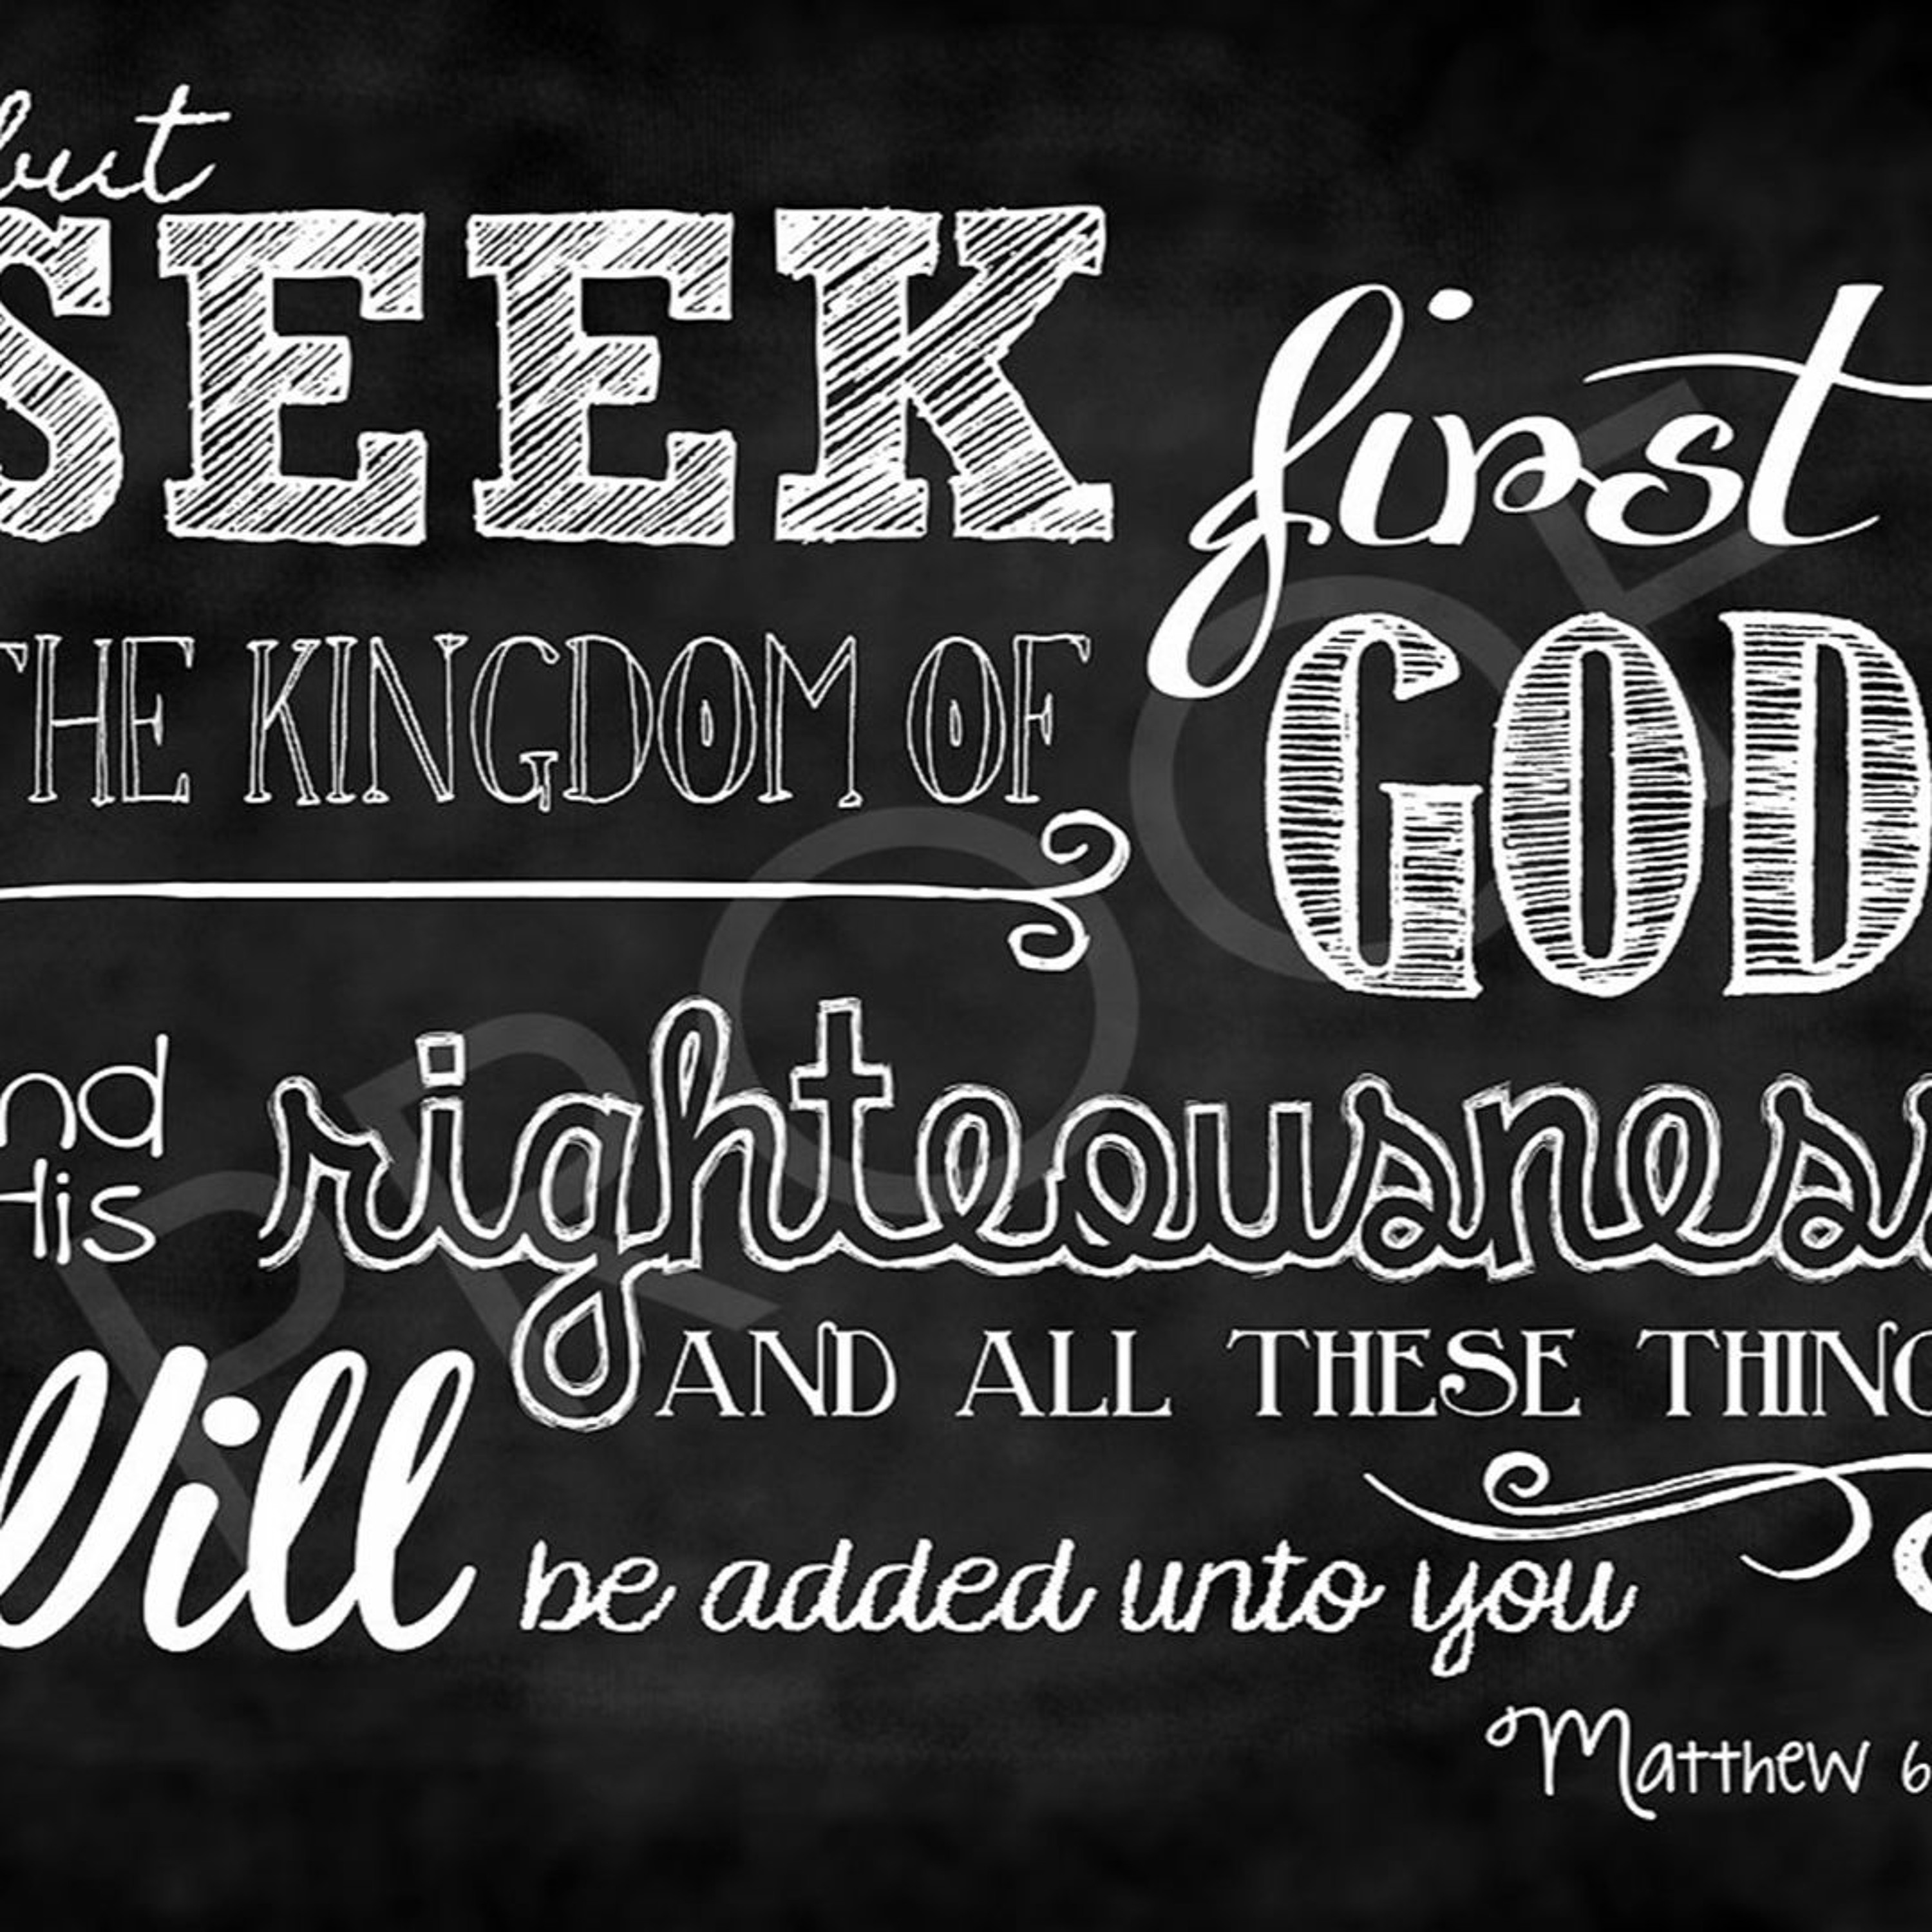 but
SEEK first
THE KINGDOM OF GOD
nd
His righteousness
AND ALL THESE THING
Will be added unto you
Matthew 6
PROOF